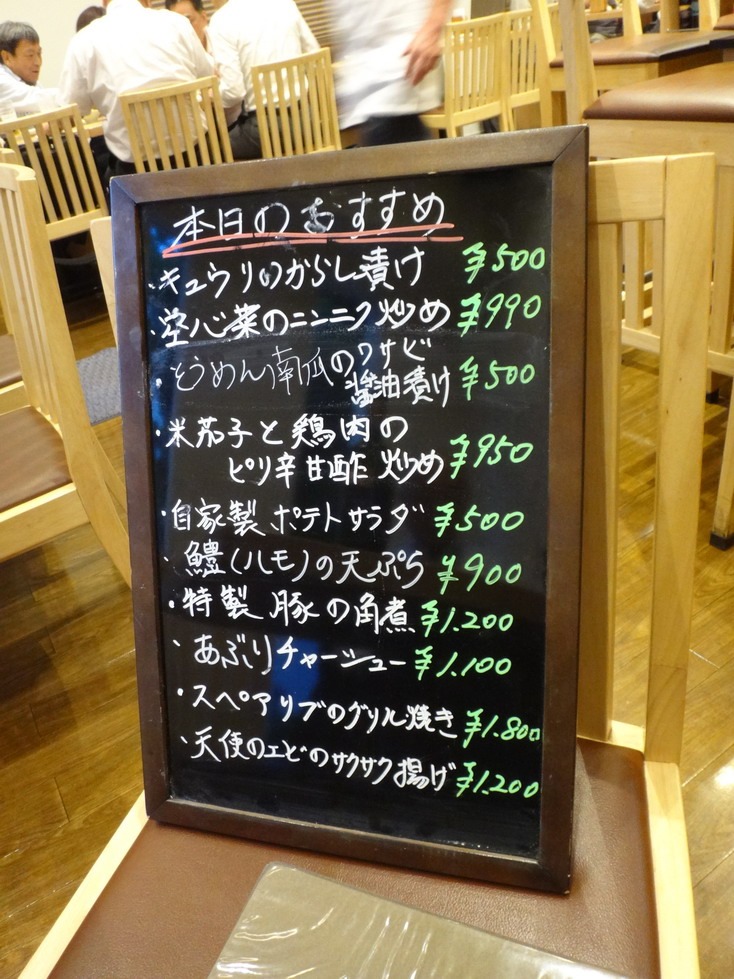 本日のおすすめ
・キュウリのからし漬け ¥500
・空心菜のニンニク炒め ¥990
・そうめん南瓜のワサビ
醤油漬け ¥500
・米茄子と鶏肉の
ピリ辛甘酢炒め ¥950
・自家製ポテトサラダ ¥500
・鱧(ハモ)の天ぷら ¥900
・特製豚の角煮 ¥1.200
・あぶりチャーシュー ¥1.100
・スペアリブのグリル焼き ¥1.800
・天使のエビのサクサク揚げ ¥1.200